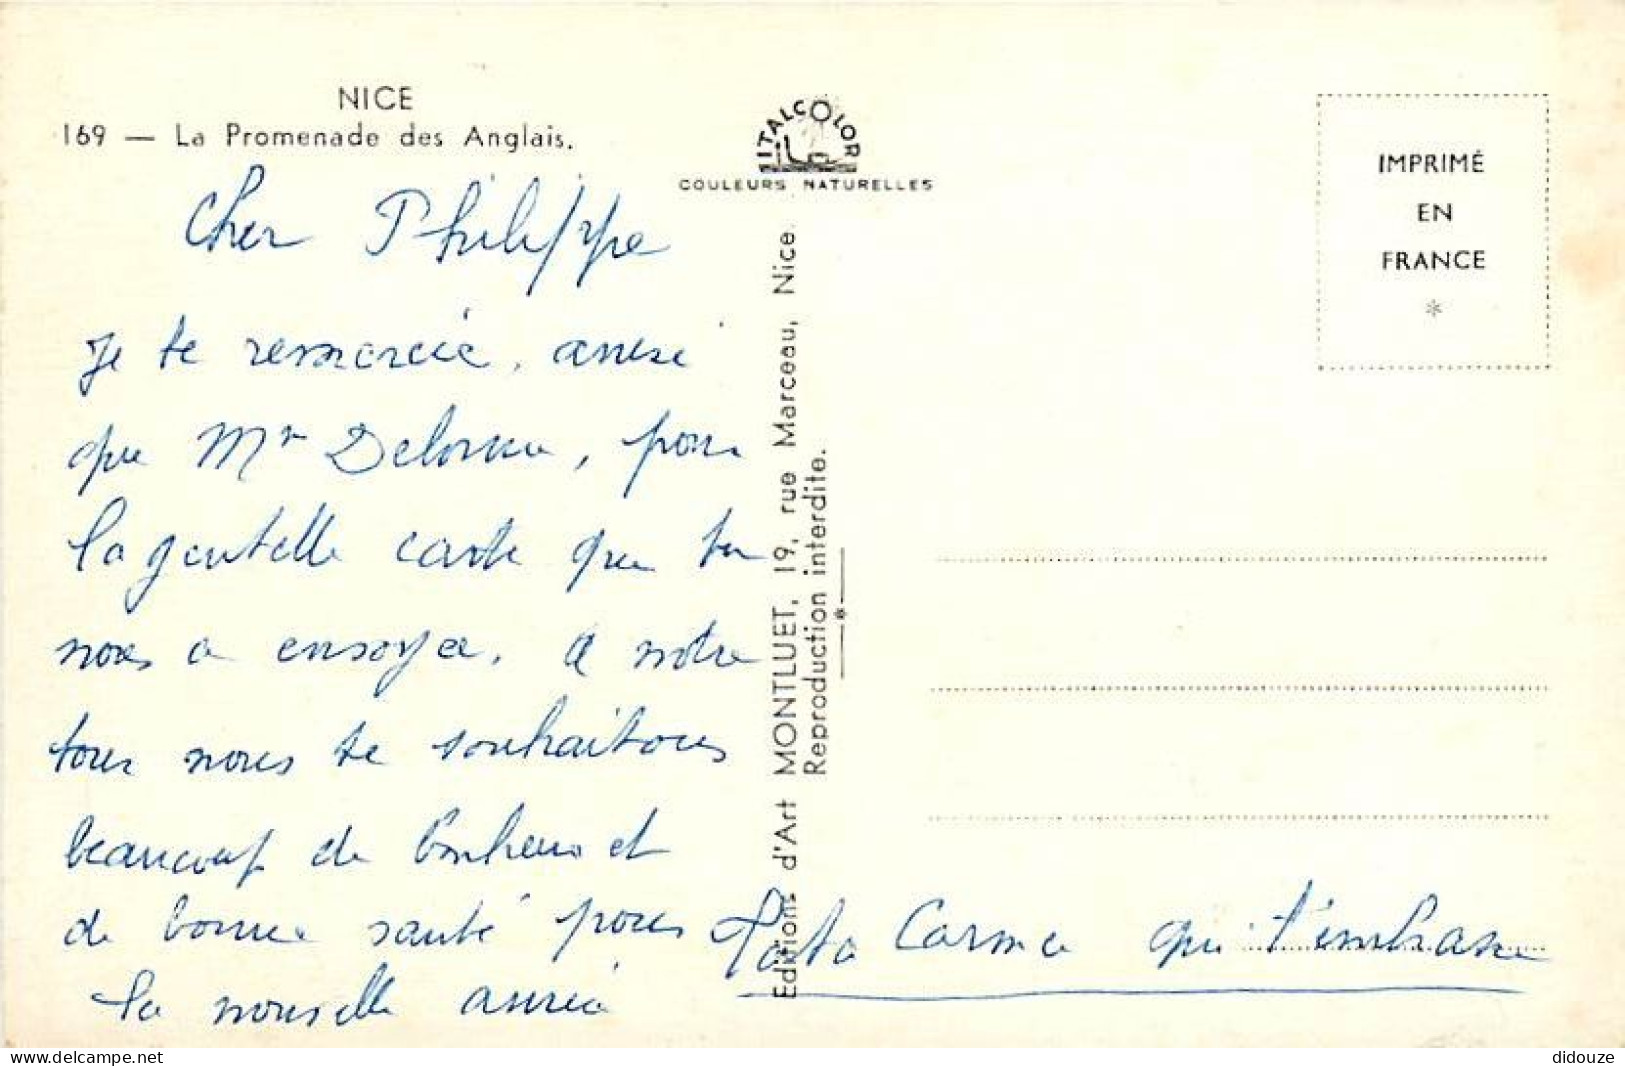 NICE
169 — La Promenade des Anglais.
ITALCOLOR
COULEURS NATURELLES
IMPRIMÉ
EN
FRANCE
*
Cher Philippe
je te remercie, ainsi
que Mr Delorme, pour
la gentille carte que tu
nous a envoyée. A notre
tour nous te souhaitons
beaucoup de bonheur et
de bonne santé pour
la nouvelle année
Tata Carma qui t'embrasse
Editions d'Art MONTLUET, 19, rue Marceau, Nice.
Reproduction interdite.
*
www.delcampe.net
didouze